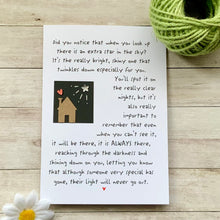 Did you notice that when you look up
there is an extra star in the sky?
It's the really bright, shiny one that
twinkles down especially for you.
You'll spot it on
the really clear
nights, but it's
also really
important to
remember that even
when you can't see it,
it will be there, it is ALWAYS there,
reaching through the darkness and
shining down on you, letting you know
that although someone very special has
gone, their light will never go out.